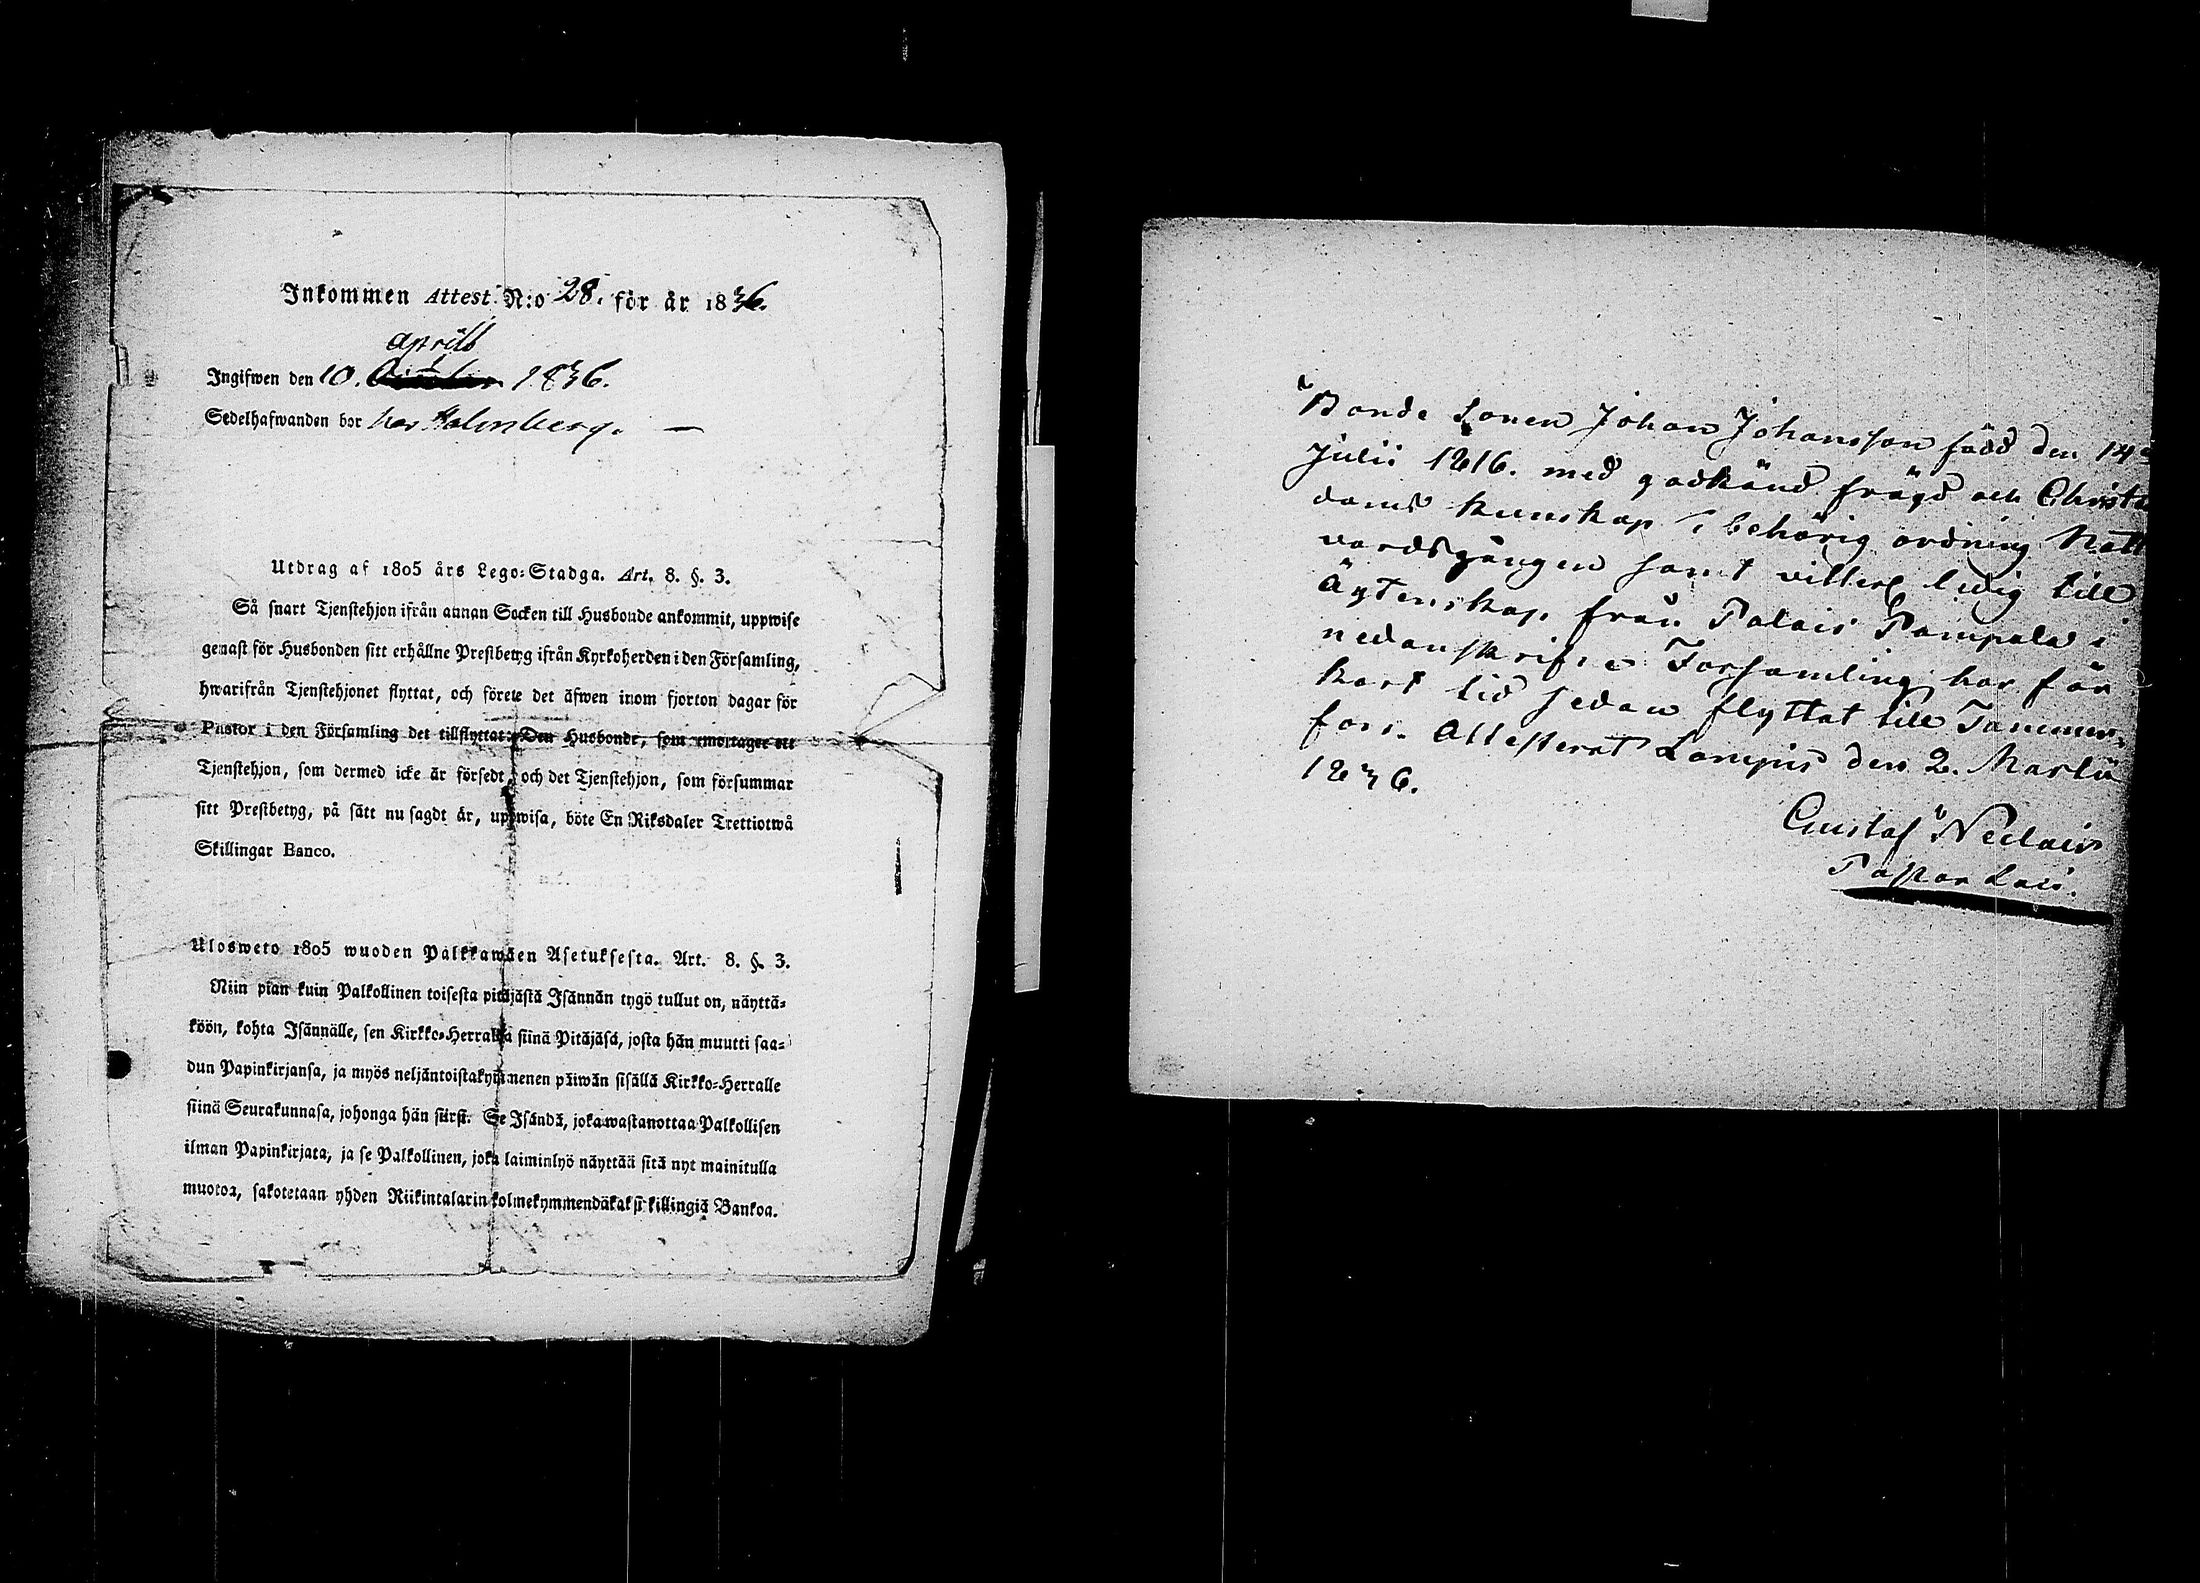 Inkommen Attest N:o 28. för år 1836.
Aprill
Ingifwen den 10. 1836.
Sedelhafwanden bor hos Holmberg. —
Utdrag af 1805 års Lego-Stadga. Art. 8. §. 3.
Så snart Tjenstehjon ifrån annan Socken till Husbonde ankommit, uppwise
genast för Husbonden sitt erhållne Prestbetyg ifrån Kyrkoherden i den Församling,
hwarifrån Tjenstehjonet flyttat, och förete det äfwen inom fjorton dagar för
Pastor i den Församling det tillflyttat: Den Husbonde, som emottager ett
Tjenstehjon, som dermed icke är försedt, och det Tjenstehjon, som försummar
sitt Prestbetyg, på sätt nu sagdt är, uppwisa, böte En Riksdaler Trettiotwå
Skillingar Banco.
Ulosweto 1805 wuoden Palkkawäen Asetuksesta. Art. 8. §. 3.
Niin pian kuin Palkollinen toisesta pitäjästä Isännän tygö tullut on, näyttä-
köön, kohta Isännälle, sen Kirkko-Herralda siinä Pitäjäsä, josta hän muutti saa-
dun Papinkirjansa, ja myös neljäntoistakymmenen päiwän sisällä Kirkko-Herralle
siinä Seurakunnasa, johonga hän siirsi. Se Isändä, joka wastanottaa Palkollisen
ilman Papinkirjata, ja se Palkollinen, joka laiminlyö näyttää sitä nyt mainitulla
muotoa, sakotetaan yhden Riikintalarin kolmekymmendäkaksi killingiä Bankoa.
Bonde Sonen Johan Johansson född den 14
Julii 1816. med godkänd frägd och Christen
doms kunskap i behörig ordning Natt
vardsgången samt vitterl. ledig till
Ägtenskap från Palais Pampala i
nedanskrifne Församling har för
kort tid sedan flyttat till Tammer-
fors. Attesterat Lampis den 2. Martii
1836.
Gustaf
Pastor Loci.